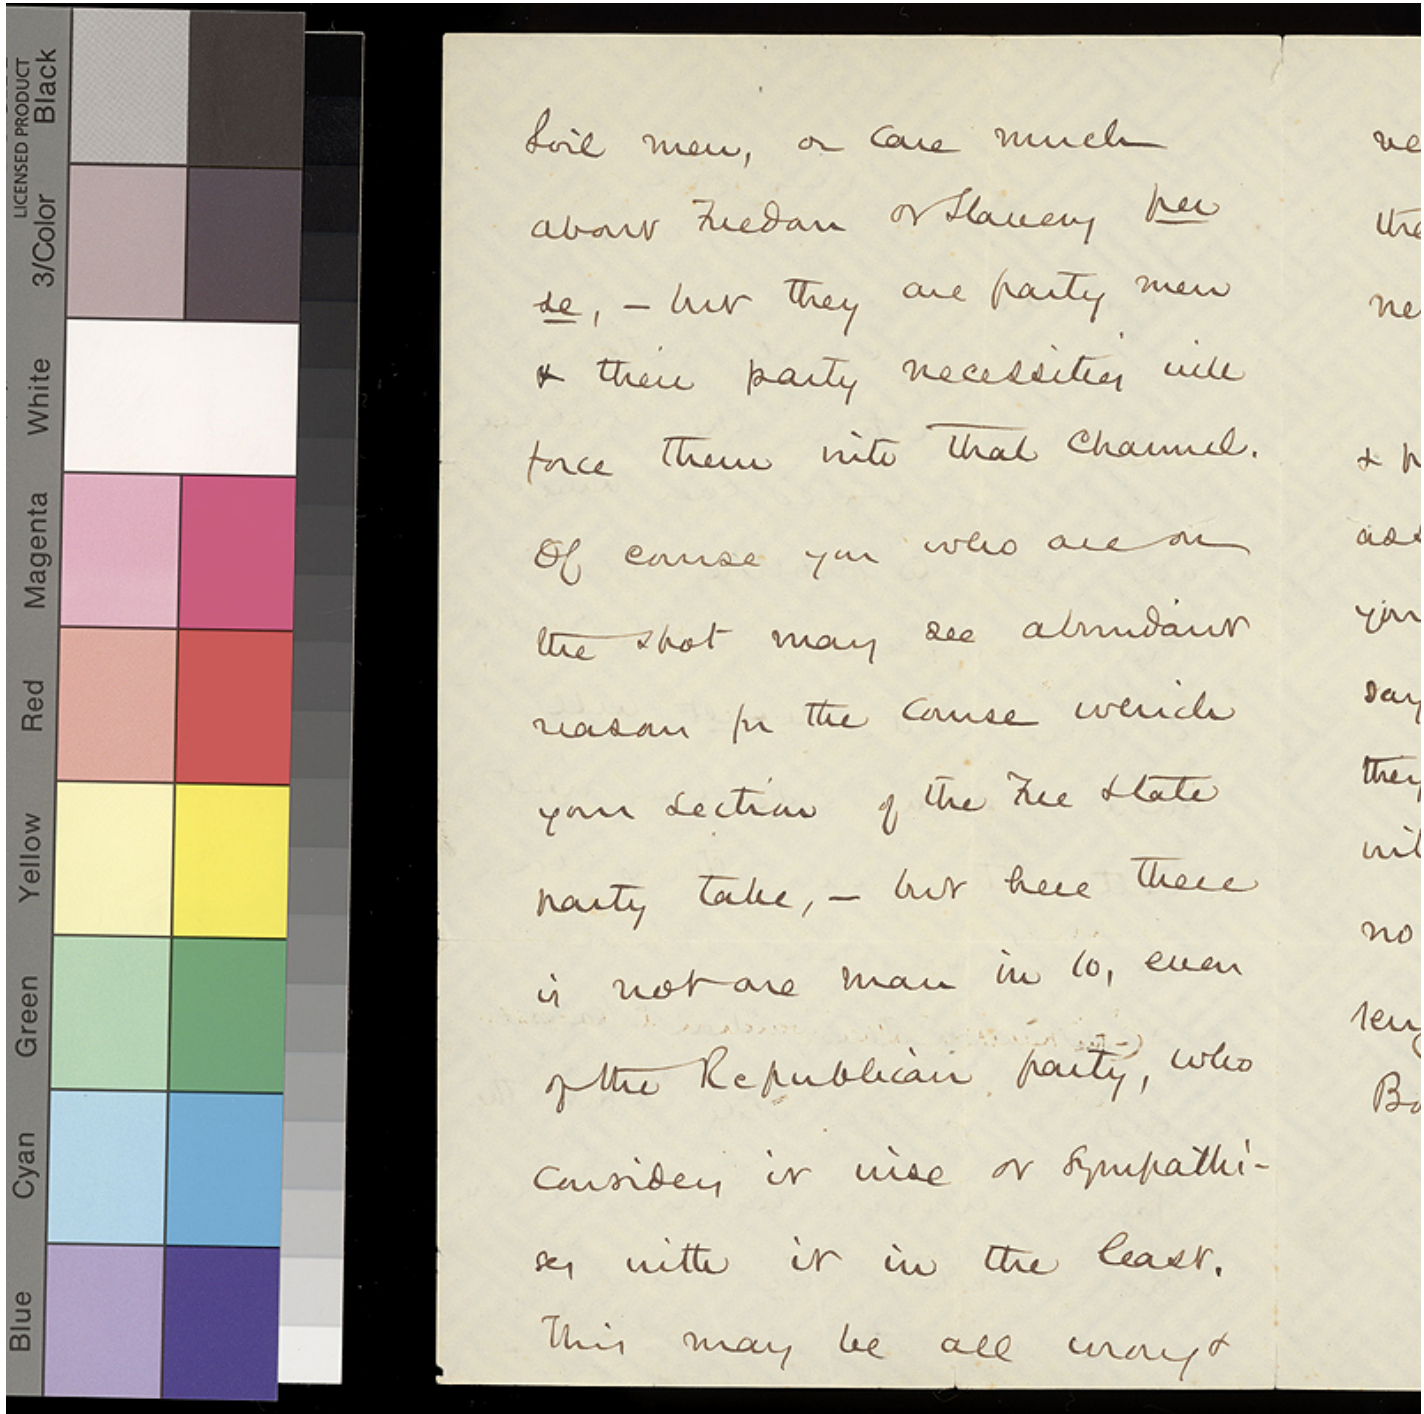 LICENSED PRODUCT
Black
3/Color
White
Magenta
Red
Yellow
Green
Cyan
Blue
Soil men, or care much
about Freedom or Slavery per
se, – but they are party men
& their party necessities will
force them into that channel.
Of course you who are on
the spot may see abundant
reason for the course which
your section of the Free State
party take, – but here there
is not one man in 10, even
of the Republican party, who
considers it wise or sympathi-
ses with it in the least.
This may be all wrong &
ne
the
ne
& p
ass
you
say
they
wit
no
Bo